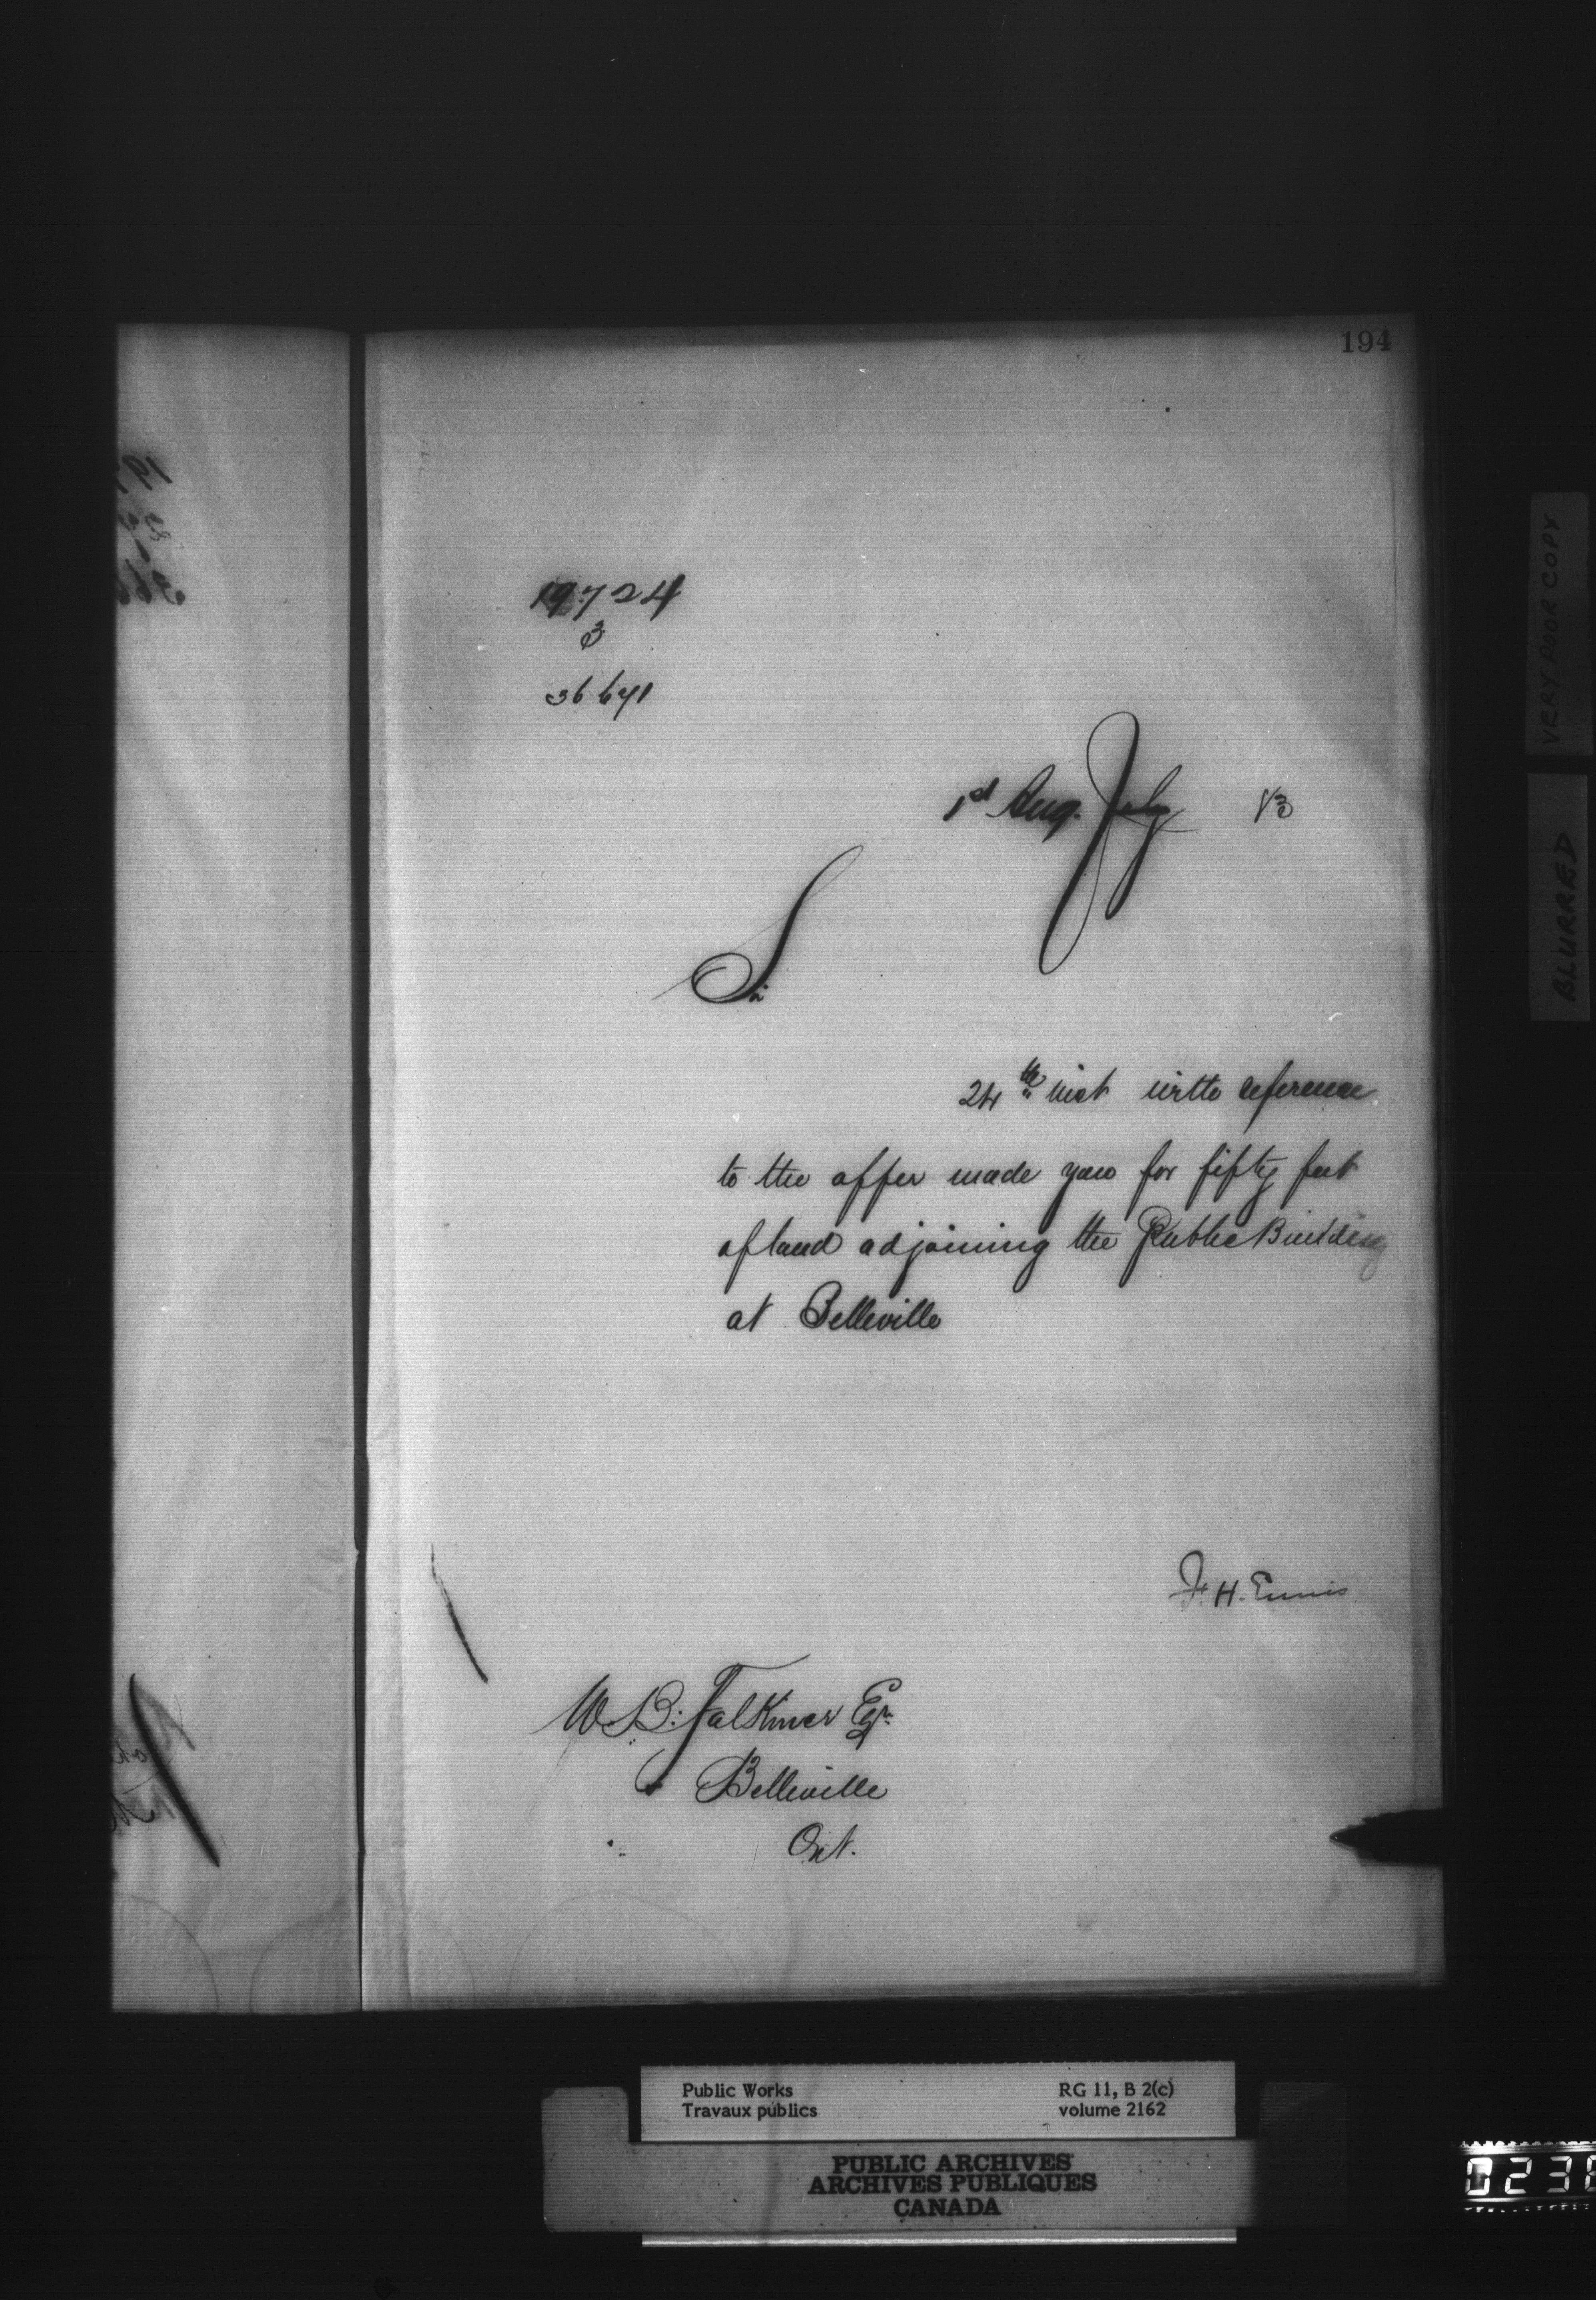 194
19724
3
36671
1st Aug. July 83
Sir
24th inst with reference
to the offer made you for fifty feet
of land adjoining the Public Building
at Belleville
F. H. Ennis
W. B. Falkiner Esqr.
Belleville
Ont.
VERY POOR COPY
BLURRED
Public Works RG 11, B 2(c)
Travaux publics volume 2162
PUBLIC ARCHIVES
ARCHIVES PUBLIQUES
CANADA